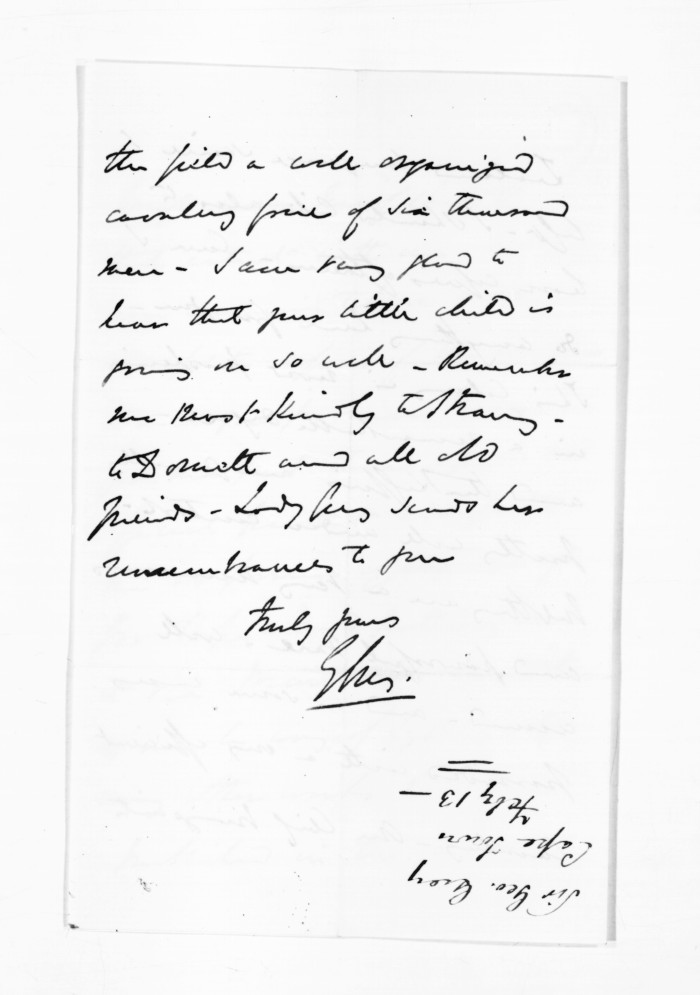 the field a well organized
cavalry force of six thousand
men - I am very glad to
hear that your little child is
going on so well - Remember
me most kindly to
to Domett and all old
friends - Lady Grey sends her
remembrances to you
Truly yours
GGrey.
Sir Geo. Grey
Cape Town
Feby 13 -